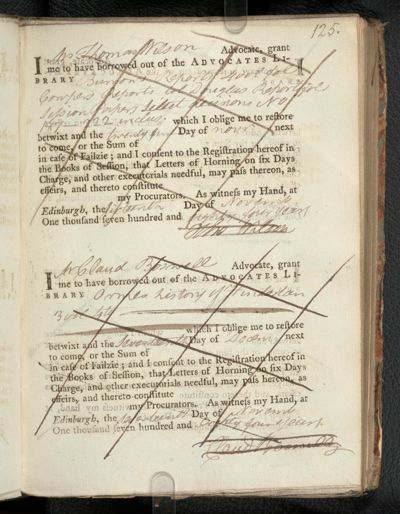 125.
I Mr Thomas Wilson Advocate, grant
me to have borrowed out of the ADVOCATES LI-
BRARY Burrows Reports
Cowpers Reports Douglas Reports
Session papers select decisions No
22 which I oblige me to restore
betwixt and the Day of Novr next
to come, or the Sum of
in case of Failzie; and I consent to the Registration hereof in
the Books of Session, that Letters of Horning on six Days
Charge, and other executorials needful, may pass thereon, as
effeirs, and thereto constitute
my Procurators. As witness my Hand, at
Edinburgh, the Day of Novemr
One thousand seven hundred and eighty four years
Thos Wilson
I Mr Claud Boswell Advocate, grant
me to have borrowed out of the ADVOCATES LI-
BRARY Ormes history of Indostan
3 vol 4to
which I oblige me to restore
betwixt and the Seventeenth Day of Decemr next
to come, or the Sum of
in case of Failzie; and I consent to the Registration hereof in
the Books of Session, that Letters of Horning on six Days
Charge, and other executorials needful, may pass hereon, as
effeirs, and thereto constitute
my Procurators. As witness my Hand, at
Edinburgh, the seventeenth Day of Novemr
One thousand seven hundred and Eighty four years
Claud Boswell